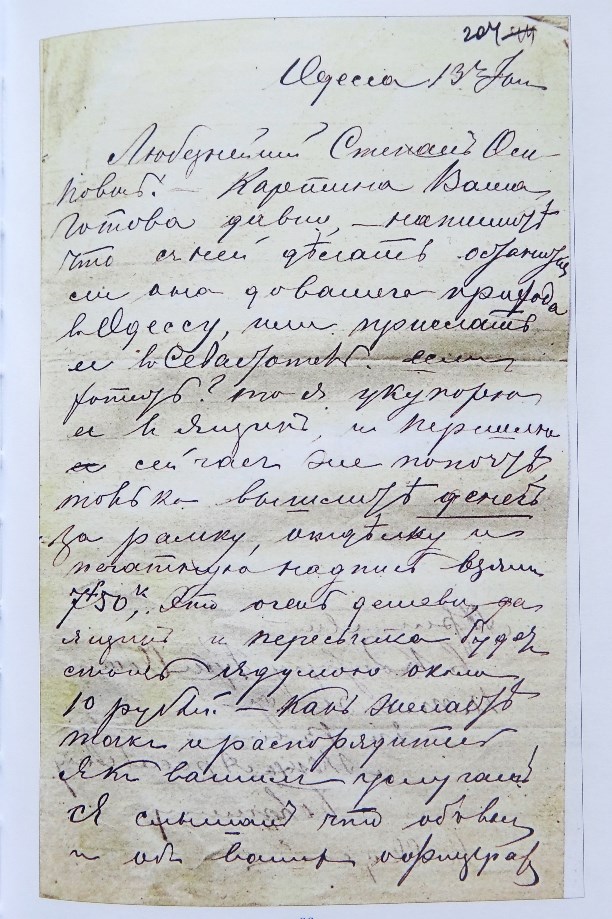 204
Одесса 13го Јюн
Любезнейший Степанъ Оси-
повичь! — Картина Ваша
готова давно, — напишитѣ
что с ней дѣлать
ли она до вашего прихода
в Одессу, или прислать
ее в Севастополь. если
хотитѣ? то я укупорю
ее в ящикъ, и перешлю
сейчасъ же по почтѣ,
только вышлитѣ денегъ
за рамку, отдѣлку и
печатную надпись взяли
7р 50к, это очень дешево, да
ящикъ и пересылка будет
стоить я думаю около
10 рублей. — Какъ желаетѣ
такъ и распорядитесь
я к вашим услугамъ
Я слышалъ что
и объ вашихъ офицерах